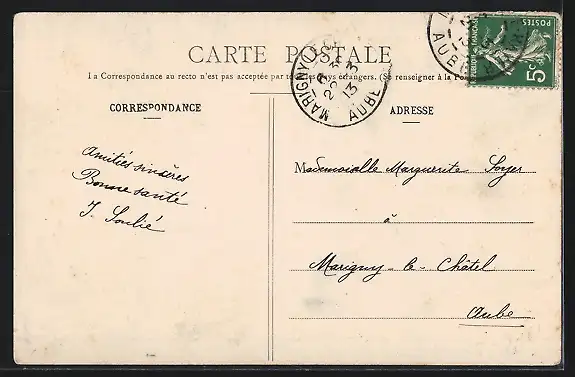 CARTE POSTALE
La Correspondance au recto n'est pas acceptée par tous les pays étrangers. (Se renseigner à la Poste)
CORRESPONDANCE
ADRESSE
MARIGNY-LE-C
22-3
13
AUBE
POSTES
5c
Amitiés sincères
Bonne santé
J. Soulié
Mademoiselle Marguerite Soyer
à
Marigny-le-Châtel
Aube